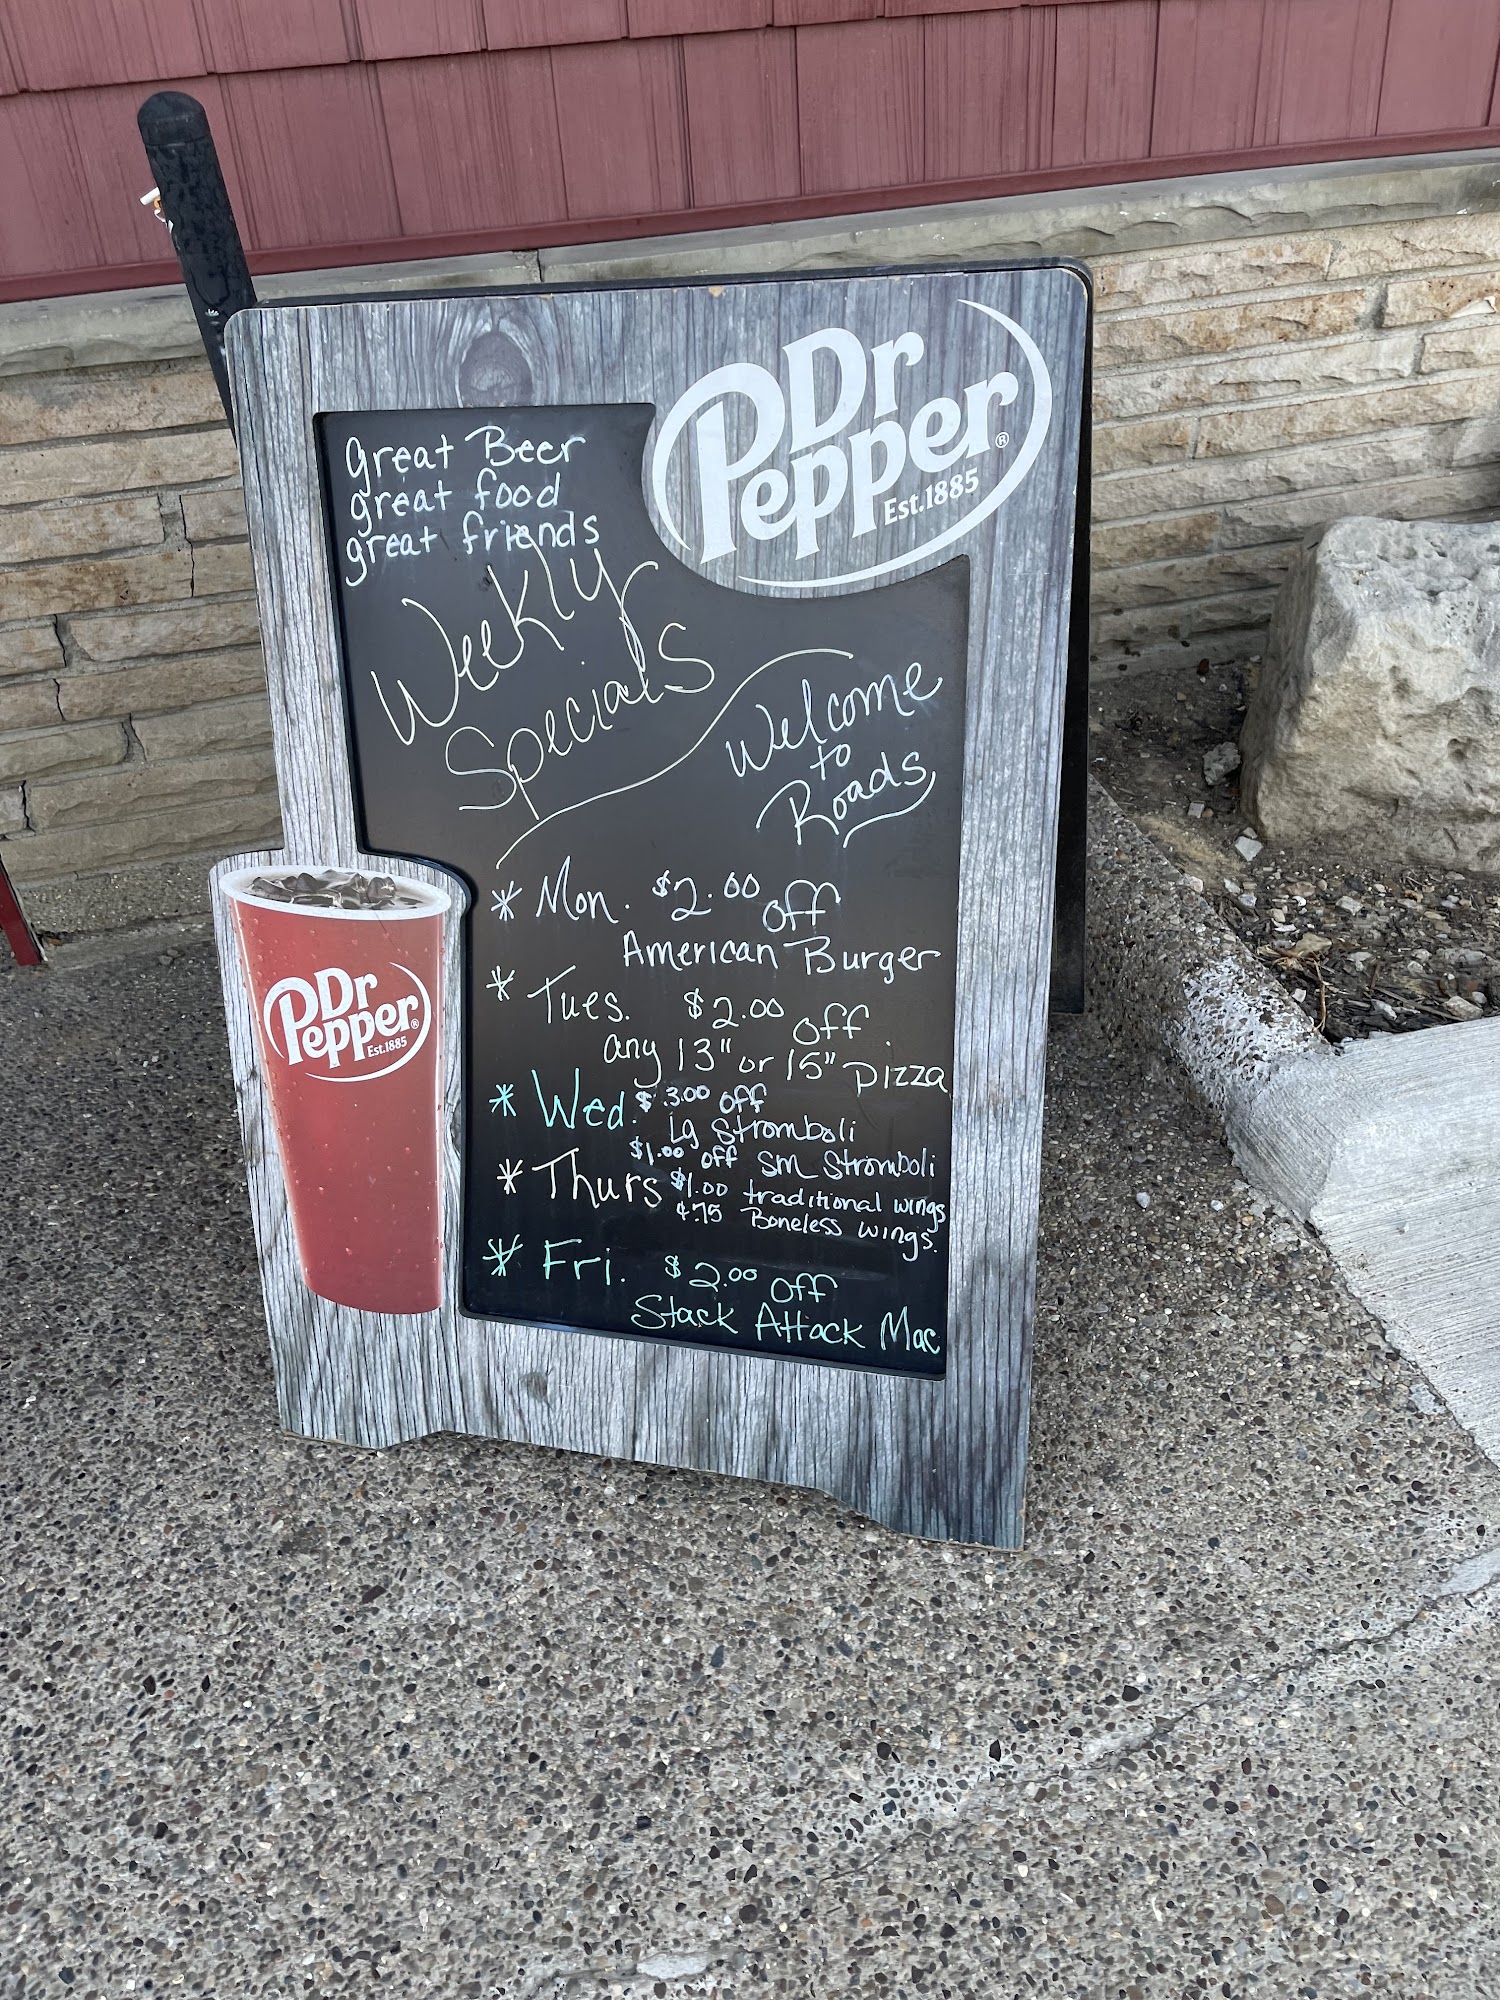 Dr
Pepper®
Est.1885
great Beer
great food
great friends
Weekly
Specials
Welcome
to
Roads
* Mon. $2.00 off
American Burger
* Tues. $2.00 off
any 13" or 15" pizza
* Wed. $3.00 off
Lg Stromboli
$1.00 off sm Stromboli
* Thurs $1.00 traditional wings
¢.75 Boneless wings.
* Fri. $2.00 off
Stack Attack Mac
Dr
Pepper®
Est.1885